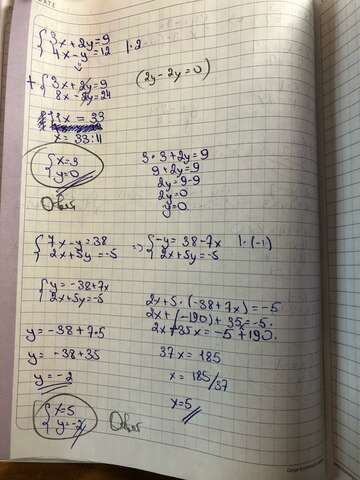 DATE
{3x+2y=9
{4x-y=12 |·2
↓
+ {3x+2y=9
{8x-2y=24
(2y-2y=0)
11x = 33
x = 33:11
{x=3
{y=0
3·3+2y=9
9+2y=9
2y=9-9
2y=0
y=0
{7x-y=38
{2x+5y=-5
=> {-y=38-7x |·(-1)
{2x+5y=-5
{y=-38+7x
{2x+5y=-5
2x+5·(-38+7x)=-5
2x+(-190)+35=-5
2x+35x=-5+190
37x=185
x=185/37
x=5
y=-38+7·5
y=-38+35
y=-2
{x=5
{y=-2